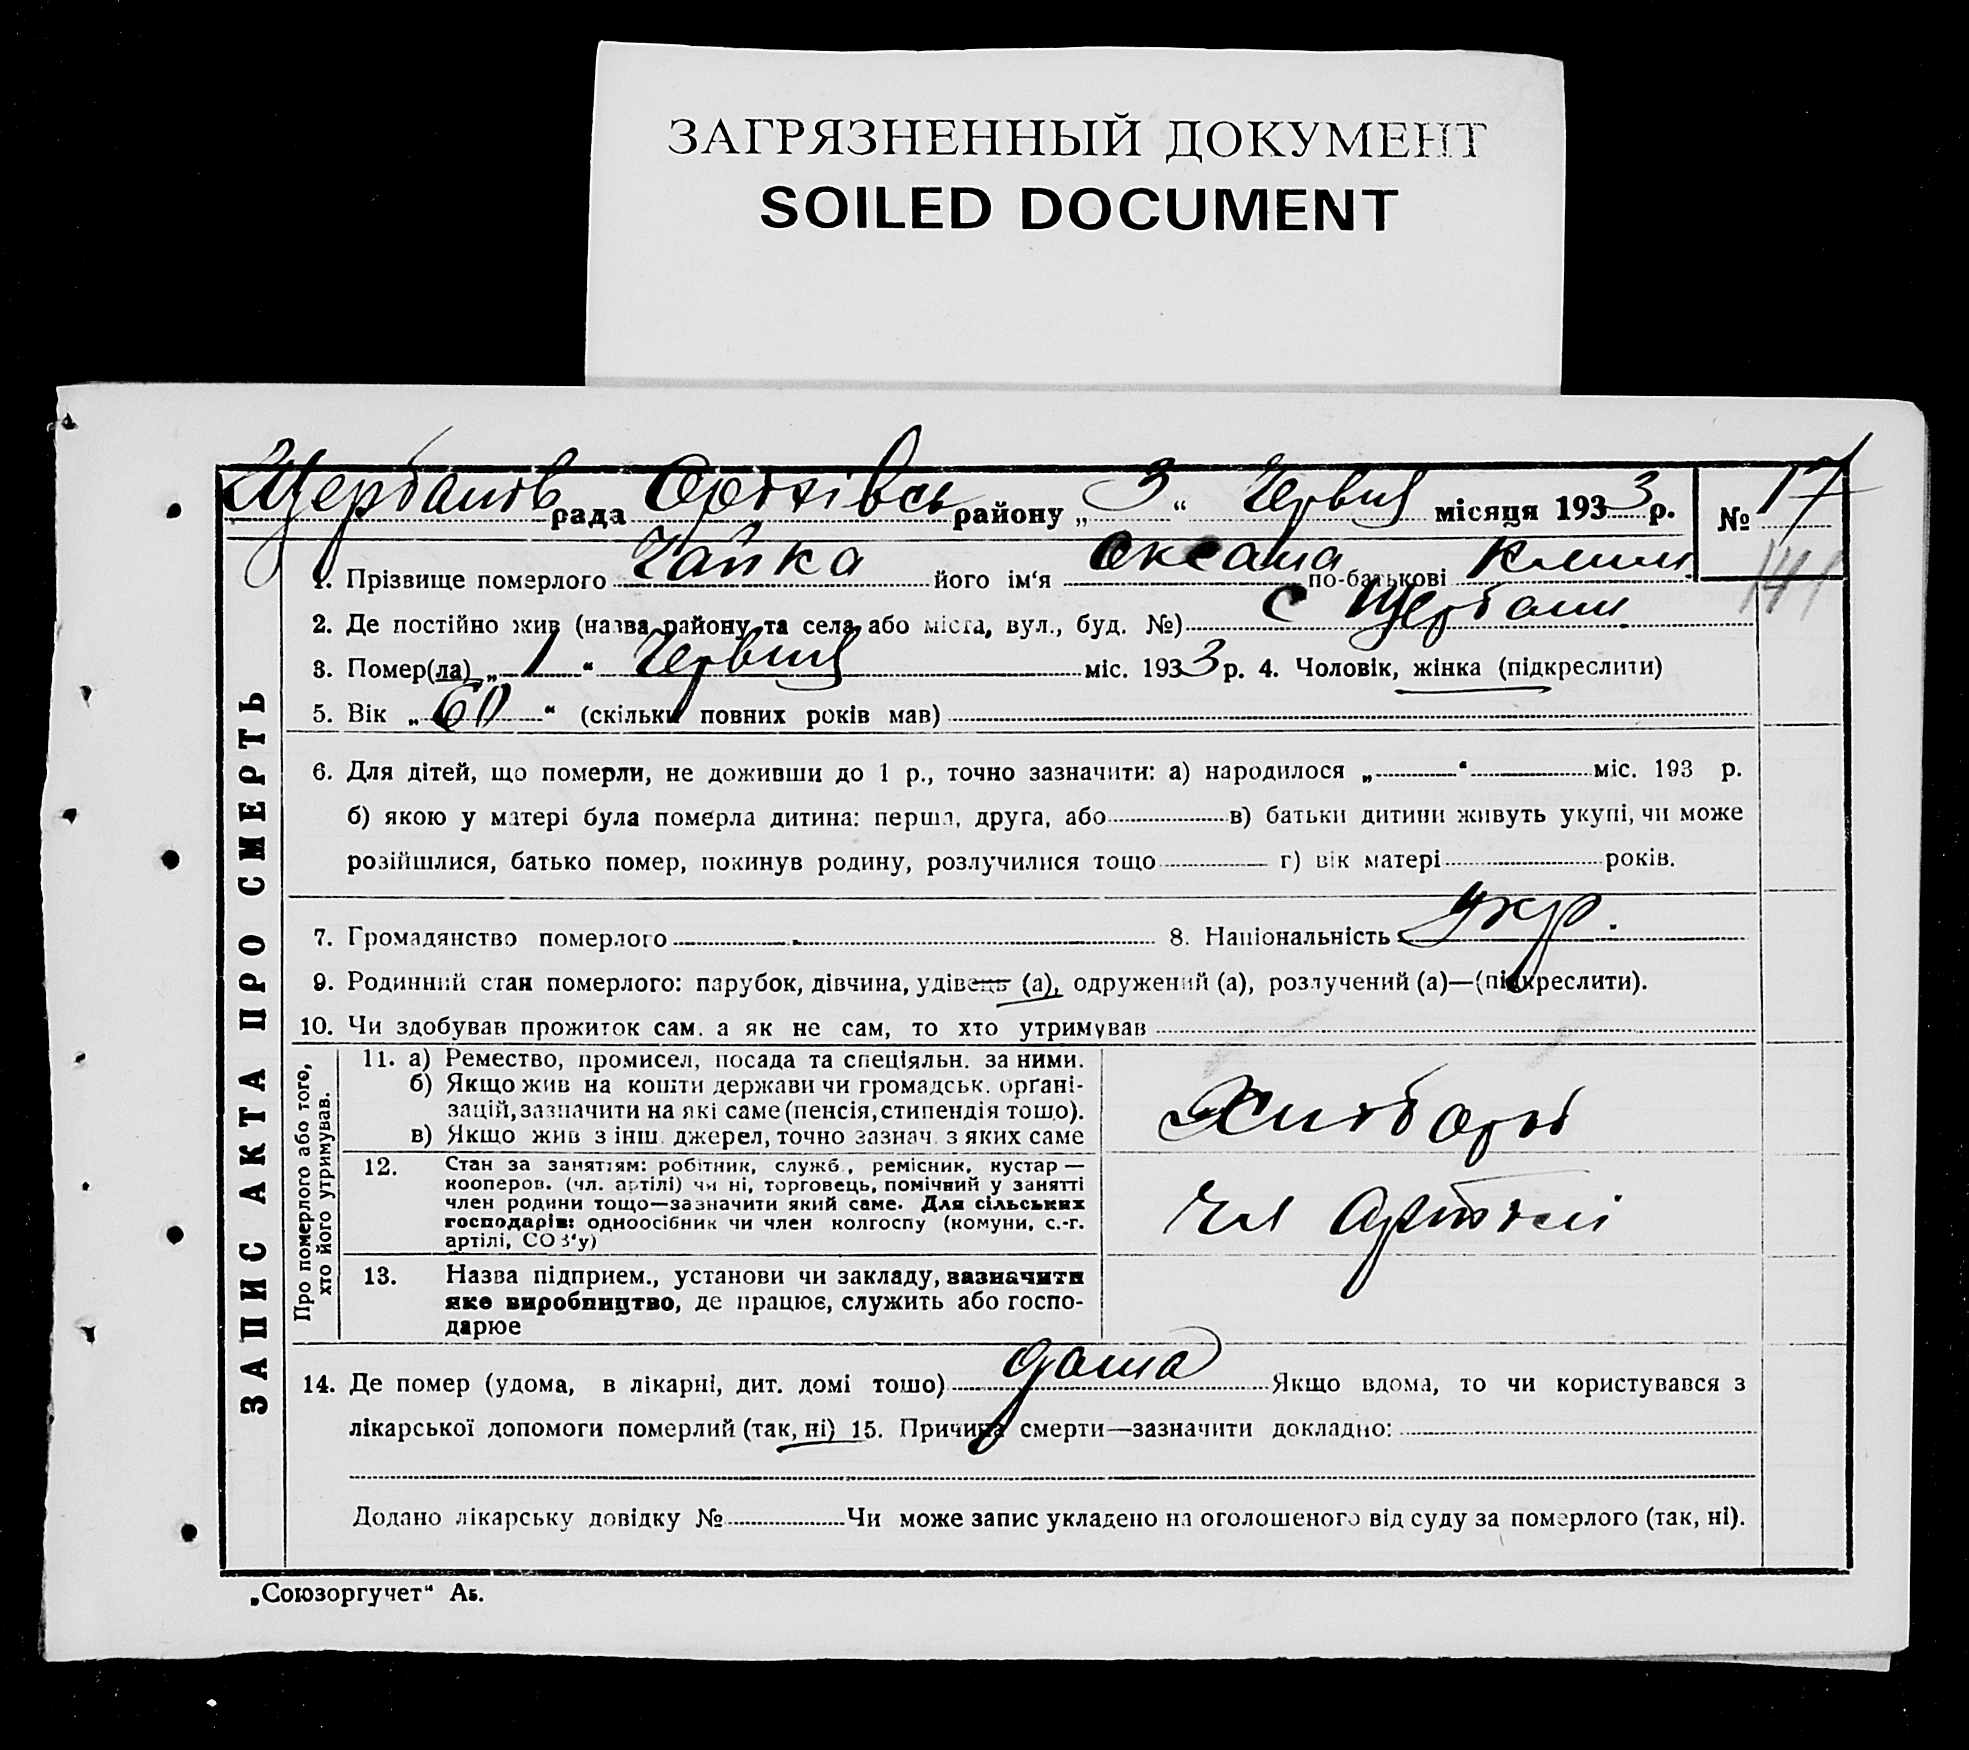 ЗАГРЯЗНЕННЫЙ ДОКУМЕНТ
SOILED DOCUMENT
рада району „ 3 “ Червня місяця 1933 р. № 17
141
1. Прізвище померлого Чайка його ім‘я Оксана по-батькові Клим
2. Де постійно жив (назва району та села, або міста, вул., буд. №) с Щербани
3. Помер(ла) „ 1 “ Червня міс. 1933 р. 4. Чоловік, жінка (підкреслити)
5. Вік „ 60 “ (скільки повних років мав)
6. Для дітей, що померли, не доживши до 1 р., точно зазначити: а) народилося „ “ міс. 193 р.
б) якою у матері була померла дитина: перша, друга, або в) батьки дитини живуть укупі, чи може
розійшлися, батько помер, покинув родину, розлучилися тощо г) вік матері років.
7. Громадянство померлого 8. Національність укр.
9. Родинний стан померлого: парубок, дівчина, удівець (а), одружений (а), розлучений (а)—(підкреслити).
10. Чи здобував прожиток сам. а як не сам, то хто утримував
ЗАПИС АКТА ПРО СМЕРТЬ
Про померлого або того,
хто його утримував.
11. а) Ремество, промисел, посада та спеціяльн. за ними.
б) Якщо жив на кошти держави чи громадськ. орґані-
зацій, зазначити на які саме (пенсія, стипендія тощо).
в) Якщо жив з інш. джерел, точно зазнач. з яких саме
Хлібороб
12. Стан за заняттям: робітник, служб., ремісник, кустар —
кооперов. (чл. артілі) чи ні, торговець, помічний у занятті
член родини тощо—зазначити який саме. Для сільських
господарів: одноосібник чи член колгоспу (комуни, с.-г.
артілі, СОЗ‘у)
Чл Артілі
13. Назва підприєм., установи чи закладу, зазначити
яке виробництво, де працює, служить або госпо-
дарює
14. Де помер (удома, в лікарні, дит. домі тошо) дома Якщо вдома, то чи користувався з
лікарської допомоги померлий (так, ні) 15. Причина смерти—зазначити докладно:
Додано лікарську довідку № Чи може запис укладено на оголошеного від суду за померлого (так, ні).
„Союзоргучет“ Аб.